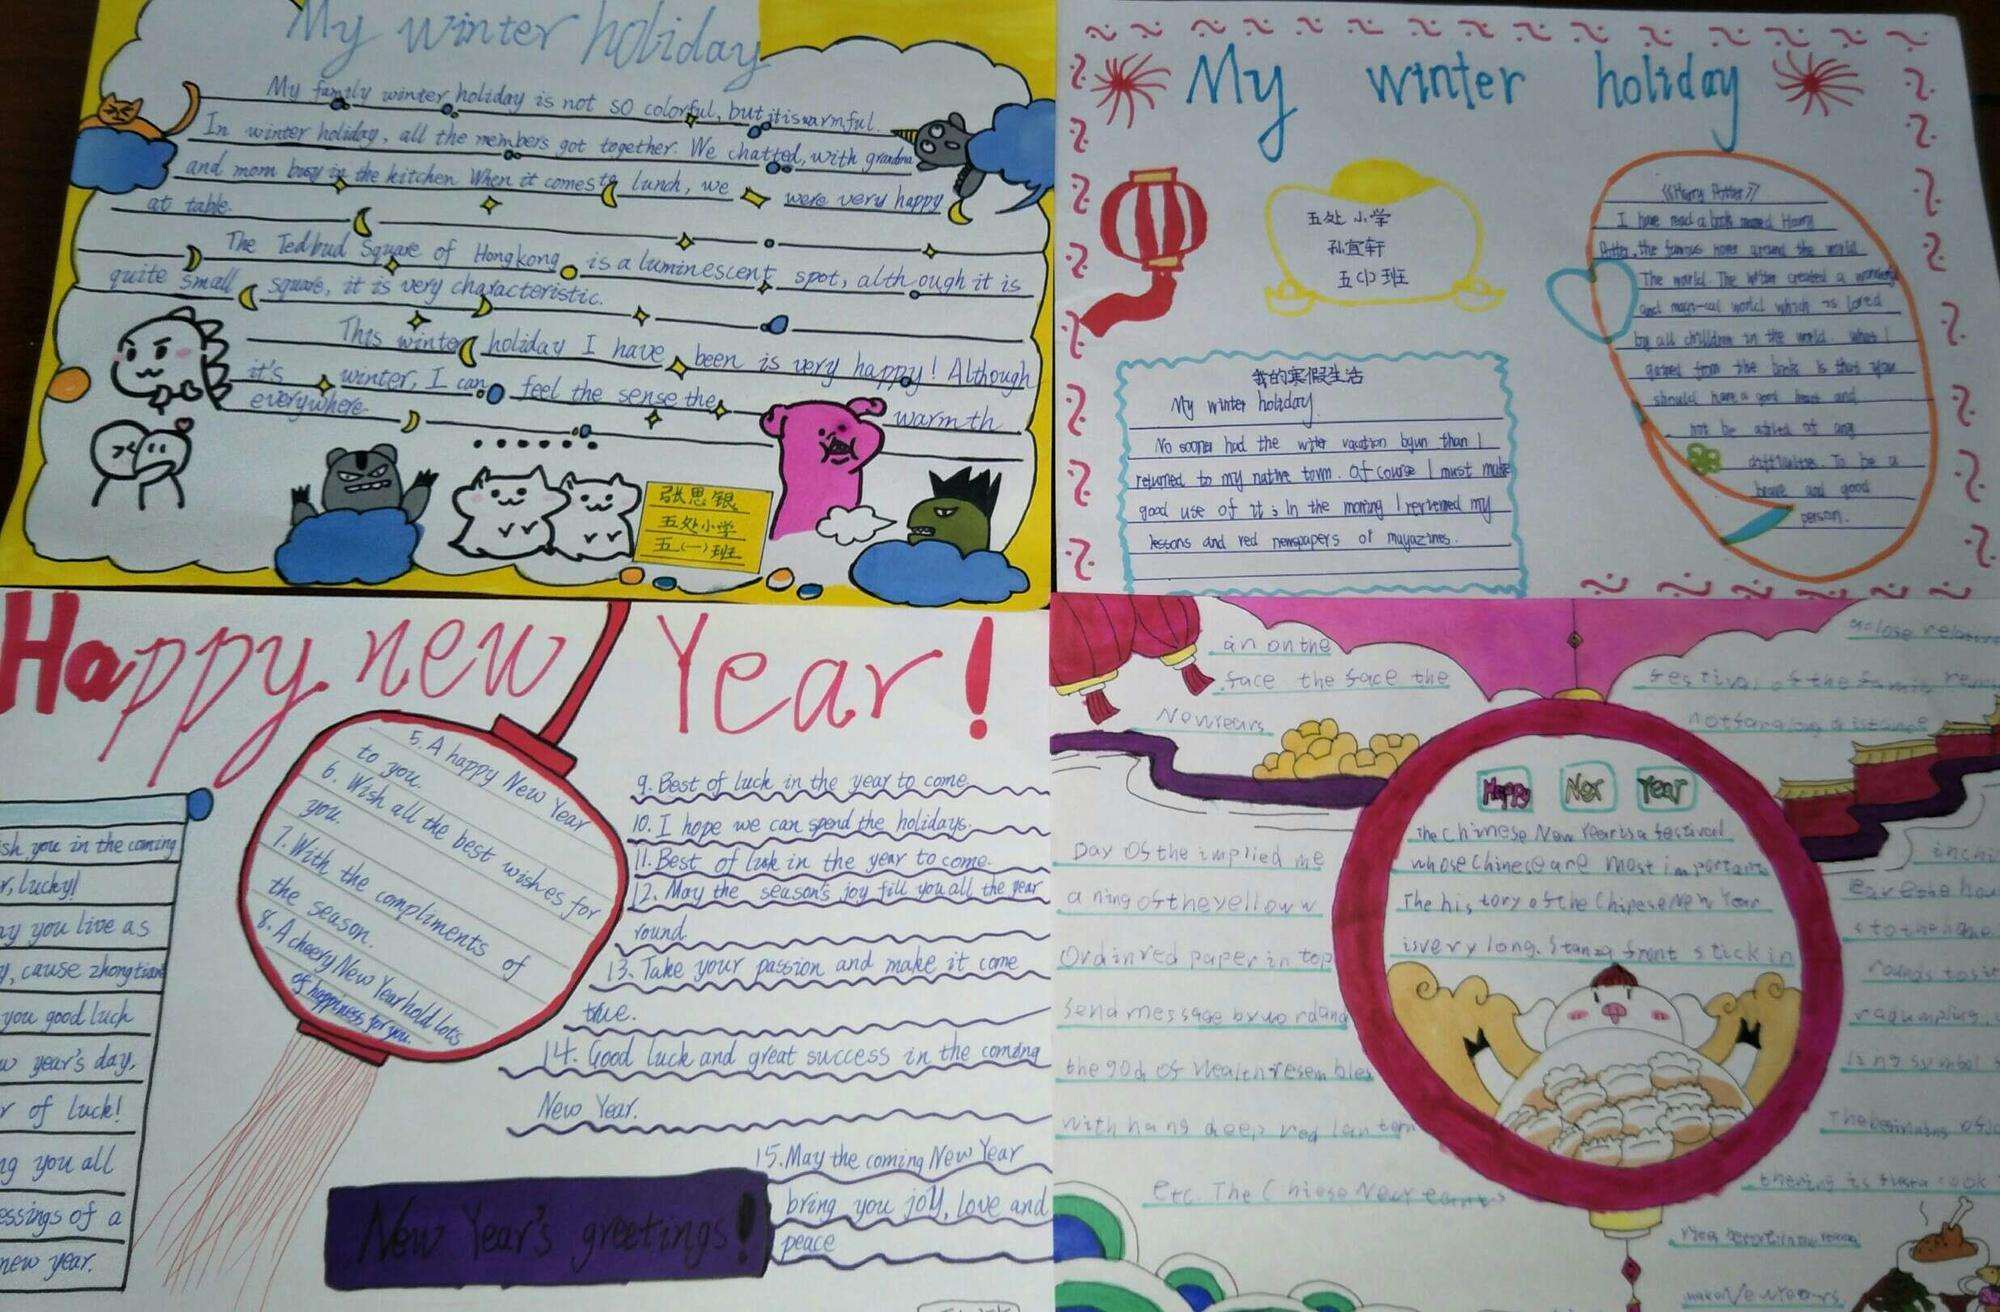 My winter holiday
My family winter holiday is not so colorful, but it is warmful.
In winter holiday, all the members got together. We chatted, with grandma
and mom busy in the kitchen. When it comes to lunch, we were very happy
at table.
The Tedbud Square of Hongkong is a luminescent spot, although it is
quite small square, it is very characteristic.
This winter holiday I have been is very happy! Although
it's winter, I can feel the sense the warmth
everywhere.
张思银
五处小学
五(一)班
My winter holiday
五处小学
孙宜轩
五(1)班
《Harry Potter》
I have read a book named Harry
Potter, the famous over around the world.
The world. The writer created a
and world which is loved
by all children in the world. What I
gained from the book is that you
should have a good heart and
not be afraid of any
difficulties. To be a
brave and good
person.
我的寒假生活
My winter holiday.
No sooner had the witer vacation bgun than I
returned to my native town. Of course I must make
good use of it. In the morning I reviewed my
lessons and red newspapers or magazines.
Happy new Year!
sh you in the coming
r, lucky!
ay you live as
y, cause zhongtian
you good luck
w year's day,
r of luck!
ng you all
essings of a
new year.
5. A happy New Year
to you.
6. Wish all the best wishes for
you.
7. With the compliments of
the season.
8. A cheery New Year hold lots
of happiness for you.
9. Best of luck in the year to come
10. I hope we can spend the holidays.
11. Best of luck in the year to come.
12. May the season's joy fill you all the year
round.
13. Take your passion and make it come
true.
14. Good luck and great success in the coming
New Year.
15. May the coming New Year
bring you joy, love and
peace
New Year's greetings!
an on the
face the face the
New Years
Day of the implied me
aning of the yellow w
Ord in red paper in top
send message by wordand
the god of wealth resembles
with hang deep red lantern
etc. The Chinese New
Happy New Year
The Chinese New Year is a festival
whose Chinese are most important
The history of the Chinese New Year
is very long. Stanza front stick in
a close
festival of the
not
in chi
rounds to
ing symbol
The beginning of
thening is cook